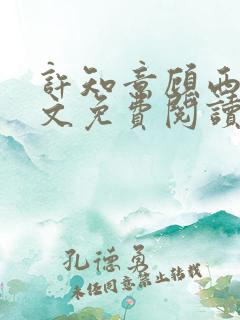 許知意顧西
文免費閱讀
孔德勇
未經同意禁止轉載